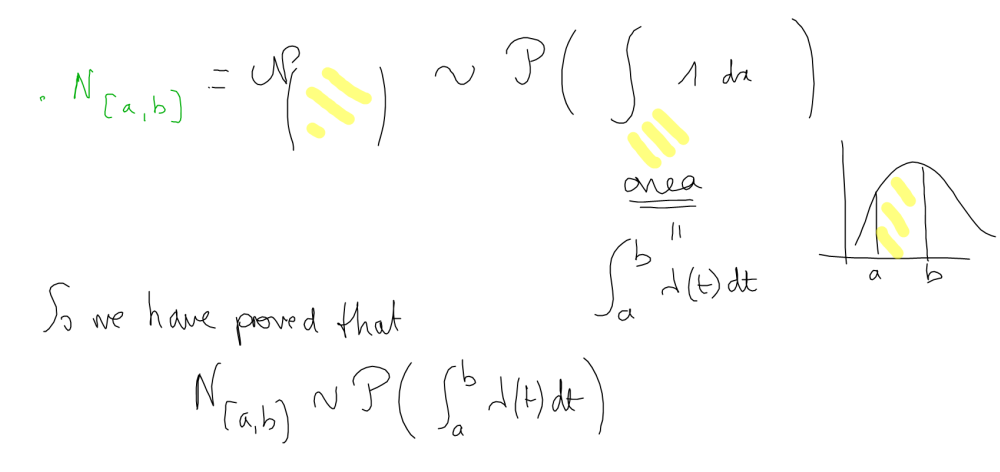 . N_[a,b] = N( ) ~ P( ∫ 1 dx )
area
=
∫_a^b λ(t) dt
a b
So we have proved that
N_[a,b] ~ P( ∫_a^b λ(t) dt )